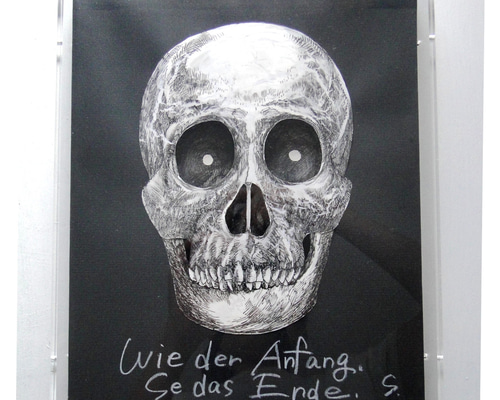 Wie der Anfang.
Se das Ende. S.